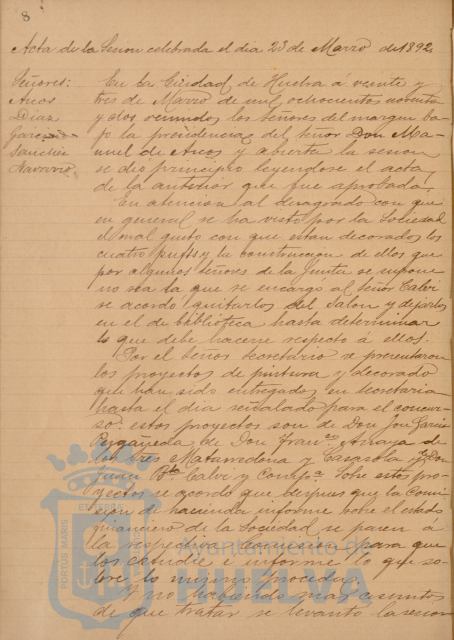 8
Acta de la Sesion celebrada el dia 23 de Marzo de 1892.
Señores:
Arcos
Diaz
Garcia
Sanchez
Navarro
En la Ciudad de Huelva á veinte y
tres de Marzo de mil ochocientos noventa
y dos reunidos los señores del margen ba-
jo la presidencia del señor Don Ma-
nuel de Arcos y abierta la sesion
se dio principio leyendose el acta
de la anterior que fue aprobada.
En atencion al desagrado con que
en general se ha visto por la Sociedad
el mal gusto con que estan decorados los
cuatro puffs y la construccion de ellos que
por algunos señores de la Junta se supone
no sea la que se encargo al señor Calvi
se acordo quitarlos del Salon y dejarlos
en el de biblioteca hasta determinar
lo que debe hacerse respecto á ellos.
Por el señor Secretario se presentaron
los proyectos de pintura y decorado
que han sido entregados en Secretaria
hasta el dia señalado para el concur-
so: estos proyectos son de Don José Garcia
de Don Fran.co Arraza de
los tres Matarredona y Casasola y Don
Juan B.ta Calvi y Comp.a Sobre estos pro-
yectos se acordo que despues que la Comi-
sion de hacienda informe sobre el estado
financiero de la Sociedad se pasen á
la respectiva Comision para que
los estudie e informe lo que so-
bre lo mismo proceda.
Y no habiendo mas asuntos
de que tratar se levanto la sesion
PORTUS MARIS
ET TERRE
CUSTODIA
Ayuntamiento de
HUELVA